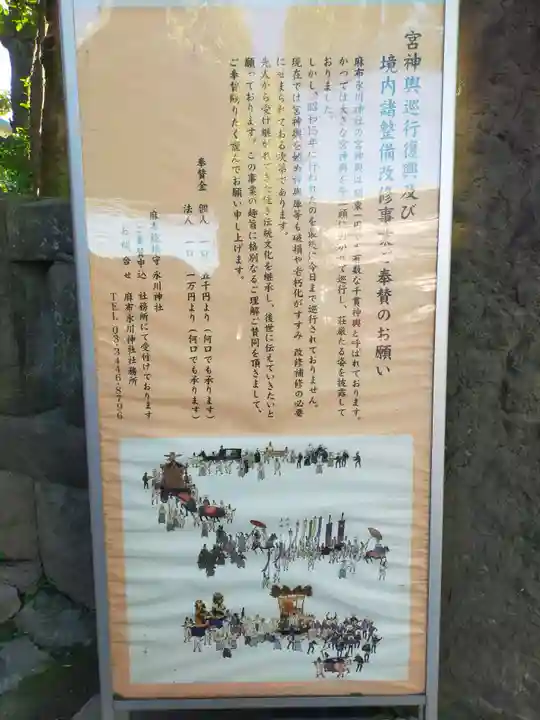 宮神輿巡行復興及び
境内諸整備改修事業ご奉賛のお願い
麻布氷川神社の宮神輿は関東一の 有数な千貫神輿と呼ばれております。
かつては大きな宮神輿を牛一頭に引かせて巡行し、荘厳たる姿を披露して
おりました。
しかし、昭和15年に行われたのを最後に今日まで巡行されておりません。
現在では宮神輿を始め神輿庫等も破損や老朽化がすすみ 改修補修の必要
にせまられておる次第であります。
先人から受け継がれてきた 伝統文化を継承し、後世に伝えていきたいと
願っております。この事業の趣旨に格別なるご理解ご賛同を頂きまして、
ご奉賛賜りたく謹んでお願い申し上げます。
奉賛金 個人 一口 五千円より（何口でも承ります）
法人 一口 一万円より（何口でも承ります）
麻布総鎮守 氷川神社
ご奉賛申込 社務所にて受付けております
お問合せ 麻布氷川神社社務所
TEL 03-3446-8796